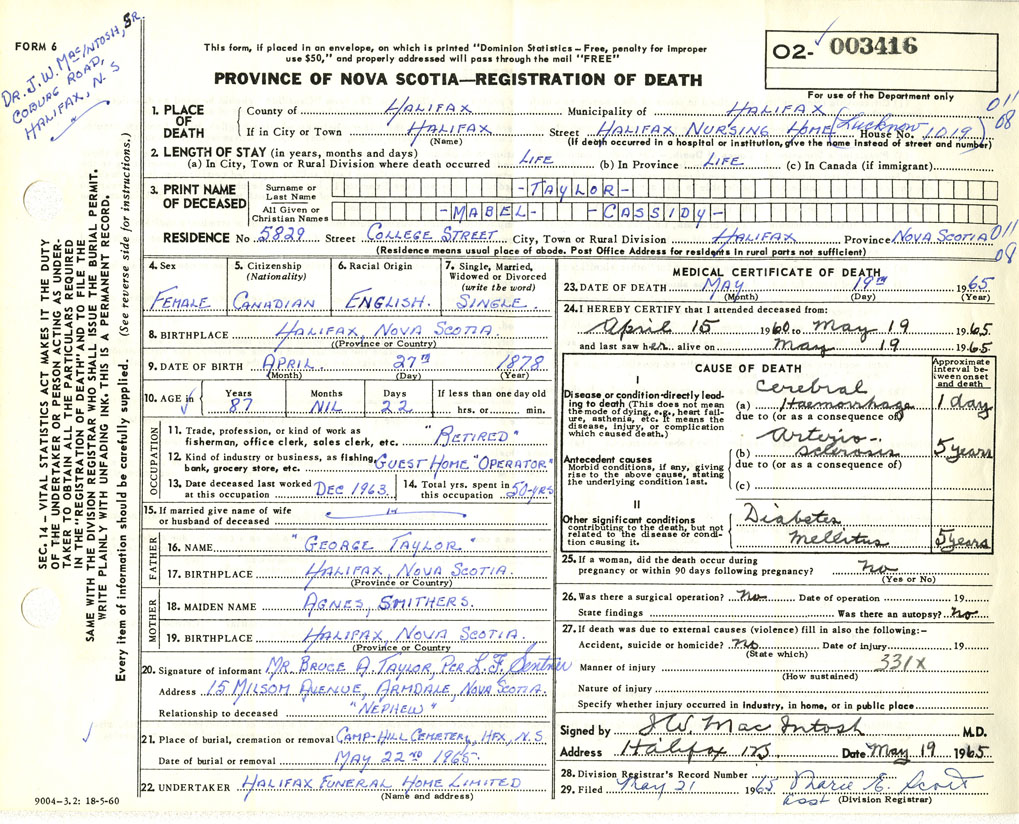 FORM 6
DR. J. W. MACINTOSH, SR.
COBURG ROAD,
HALIFAX, N. S
This form, if placed in an envelope, on which is printed "Dominion Statistics – Free, penalty for improper
use $50," and properly addressed will pass through the mail "FREE"
PROVINCE OF NOVA SCOTIA—REGISTRATION OF DEATH
02- 003416
For use of the Department only
SEC. 14 — VITAL STATISTICS ACT MAKES IT THE DUTY
OF THE UNDERTAKER OR PERSON ACTING AS UNDER-
TAKER TO OBTAIN ALL THE PARTICULARS REQUIRED
IN THE "REGISTRATION OF DEATH" AND TO FILE THE
SAME WITH THE DIVISION REGISTRAR WHO SHALL ISSUE THE BURIAL PERMIT.
WRITE PLAINLY WITH UNFADING INK. THIS IS A PERMANENT RECORD.
Every item of information should be carefully supplied. (See reverse side for instructions.)
1. PLACE OF DEATH
County of HALIFAX Municipality of HALIFAX 011
If in City or Town HALIFAX Street HALIFAX NURSING HOME (Lucknow House No. 1019) 08
(Name) (If death occurred in a hospital or institution, give the name instead of street and number)
2. LENGTH OF STAY (in years, months and days)
(a) In City, Town or Rural Division where death occurred LIFE (b) In Province LIFE (c) In Canada (if immigrant)
3. PRINT NAME OF DECEASED
Surname or Last Name -TAYLOR-
All Given or Christian Names -MABEL- -CASSIDY-
RESIDENCE No 5829 Street COLLEGE STREET City, Town or Rural Division HALIFAX Province NOVA SCOTIA 011
(Residence means usual place of abode. Post Office Address for residents in rural parts not sufficient) 08
4. Sex FEMALE
5. Citizenship (Nationality) CANADIAN
6. Racial Origin ENGLISH.
7. Single, Married, Widowed or Divorced (write the word) SINGLE.
8. BIRTHPLACE HALIFAX, NOVA SCOTIA.
(Province or Country)
9. DATE OF BIRTH APRIL 27TH 1878
(Month) (Day) (Year)
10. AGE in Years 87 Months NIL Days 22 If less than one day old hrs. or min.
OCCUPATION
11. Trade, profession, or kind of work as
fisherman, office clerk, sales clerk, etc. "RETIRED"
12. Kind of industry or business, as fishing,
bank, grocery store, etc. GUEST HOME "OPERATOR"
13. Date deceased last worked
at this occupation DEC 1963.
14. Total yrs. spent in
this occupation 50-YRS
15. If married give name of wife
or husband of deceased
FATHER
16. NAME "GEORGE TAYLOR"
17. BIRTHPLACE HALIFAX, NOVA SCOTIA.
(Province or Country)
MOTHER
18. MAIDEN NAME AGNES, SMITHERS.
19. BIRTHPLACE HALIFAX NOVA SCOTIA.
(Province or Country
20. Signature of informant MR. BRUCE A. TAYLOR, PER L.F. Sentner
Address 15 MILSOM AVENUE, ARMDALE, NOVA SCOTIA.
Relationship to deceased "NEPHEW"
21. Place of burial, cremation or removal CAMP-HILL CEMETERY, HFX, N.S
Date of burial or removal MAY 22ND 1965
22. UNDERTAKER HALIFAX FUNERAL HOME LIMITED
(Name and address)
9004–3.2: 18-5-60
MEDICAL CERTIFICATE OF DEATH
23. DATE OF DEATH MAY 19TH 1965
(Month) (Day) (Year)
24. I HEREBY CERTIFY that I attended deceased from:
April 15 1960 to May 19 1965
and last saw her alive on May 19 1965
CAUSE OF DEATH
Approximate interval between onset and death
I
Disease or condition directly leading to death (This does not mean the mode of dying, e.g., heart failure, asthenia, etc. It means the disease, injury, or complication which caused death.)
(a) Cerebral Haemorrhage 1 day
due to (or as a consequence of)
Antecedent causes
Morbid conditions, if any, giving rise to the above cause, stating the underlying condition last.
(b) Arterio-sclerosis 5 years
due to (or as a consequence of)
(c)
II
Other significant conditions
contributing to the death, but not related to the disease or condition causing it.
Diabetes
Mellitus 5 years
25. If a woman, did the death occur during
pregnancy or within 90 days following pregnancy? no
(Yes or No)
26. Was there a surgical operation? no Date of operation 19
State findings Was there an autopsy? no
27. If death was due to external causes (violence) fill in also the following:–
Accident, suicide or homicide? no Date of injury 19
(State which)
Manner of injury 331X
(How sustained)
Nature of injury
Specify whether injury occurred in industry, in home, or in public place
Signed by J.W. MacIntosh M.D.
Address Halifax NS Date May 19 1965
28. Division Registrar's Record Number
29. Filed May 21 1965 Marie E. Scott
asst (Division Registrar)